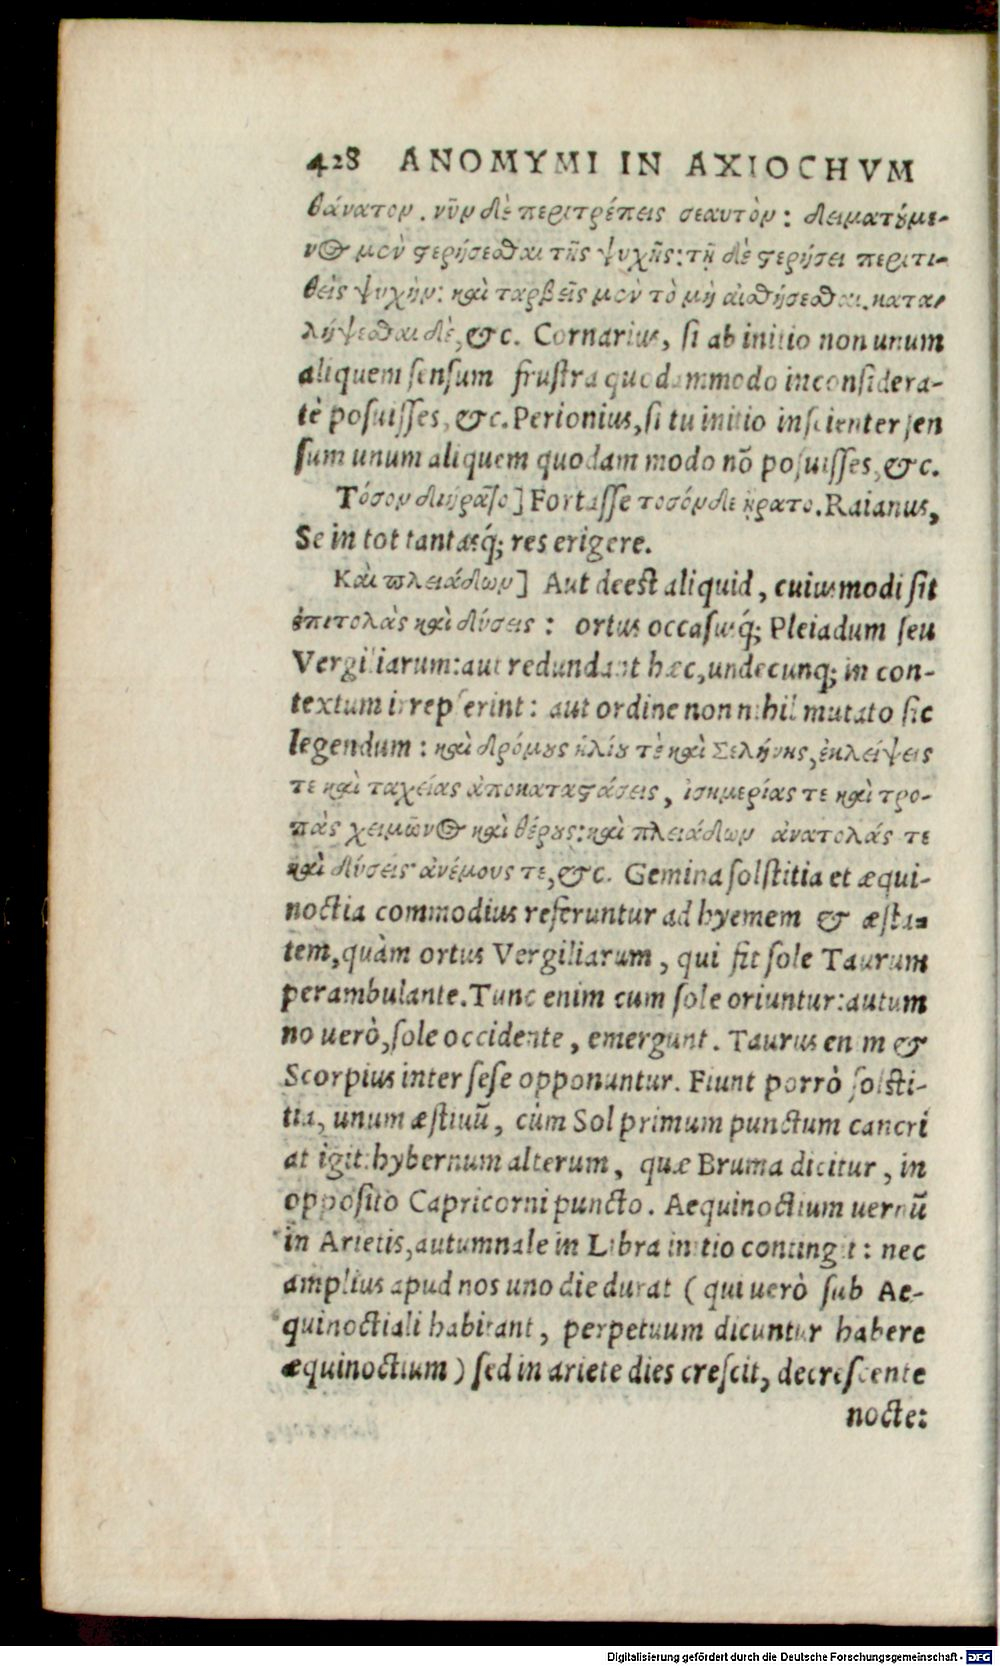 428 ANOMYMI IN AXIOCHVM
θάνατον. νῦν δὲ περιτρέπεις σεαυτὸν: δειματούμε-
νος μὲν στερήσεσθαι τῆς ψυχῆς: τῇ δὲ στερήσει περιτι-
θεὶς ψυχήν: καὶ ταρβεῖς μὲν τὸ μὴ αἰσθήσεσθαι. κατα-
λήψεσθαι δὲ, &c. Cornarius, si ab initio non unum
aliquem sensum frustra quodammodo inconsidera-
tè posuisses, &c. Perionius, si tu initio inscienter sen
sum unum aliquem quodam modo nō posuisses, &c.
Τόσον διηρᾶτο] Fortasse τοσόνδε ᾐρατο. Raianus,
Se in tot tantasq́; res erigere.
Καὶ πλειάδων] Aut deest aliquid, cuiusmodi sit
ἐπιτολὰς καὶ δύσεις: ortus occasusq́; Pleiadum seu
Vergiliarum: aut redundant hæc, undecunq; in con-
textum irrepserint: aut ordine non nihil mutato sic
legendum: καὶ δρόμους ἡλίου τὲ καὶ Σελήνης, ἐκλείψεις
τε καὶ ταχείας ἀποκαταστάσεις, ἰσημερίας τε καὶ τρο-
πὰς χειμῶνος καὶ θέρους: καὶ πλειάδων ἀνατολάς τε
καὶ δύσεις ἀνέμους τε, &c. Gemina solstitia et æqui-
noctia commodius referuntur ad hyemem & æsta-
tem, quàm ortus Vergiliarum, qui fit sole Taurum
perambulante. Tunc enim cum sole oriuntur: autum
no uerò, sole occidente, emergunt. Taurus enim &
Scorpius inter sese opponuntur. Fiunt porrò solsti-
tia, unum æstiuū, cùm Sol primum punctum cancri
attigit: hybernum alterum, quæ Bruma dicitur, in
opposito Capricorni puncto. Aequinoctium uernū
in Arietis, autumnale in Libra initio contingit: nec
amplius apud nos uno die durat (qui uerò sub Ae-
quinoctiali habitant, perpetuum dicuntur habere
æquinoctium) sed in ariete dies crescit, decrescente
nocte:
Digitalisierung gefördert durch die Deutsche Forschungsgemeinschaft - DFG